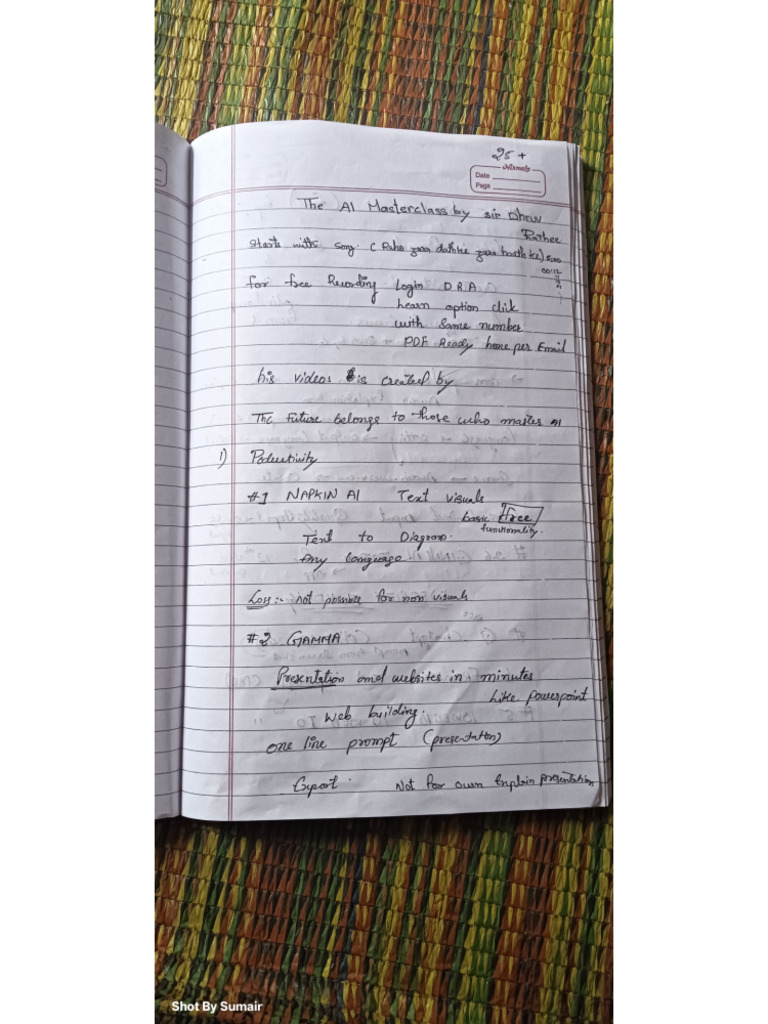 25 +
Nirmals
Date
Page
The AI Masterclass by sir Dhruv
Rathee
Starts with song. (
for free Recording Login D.R.A
Learn option click
with same number
PDF Ready hone per Email
his videos is created by
The future belongs to those who master AI
1) Poductivity
#1 NAPKIN AI Text visuals
basic free
functionality.
Text to Diagram.
Any language
Loss:- not possible for non visuals
#2 GAMMA
Presentation and websites in minutes
Like powerpoint
Web building.
one line prompt (presentation)
Export. Not for own Explain presentation
Shot By Sumair